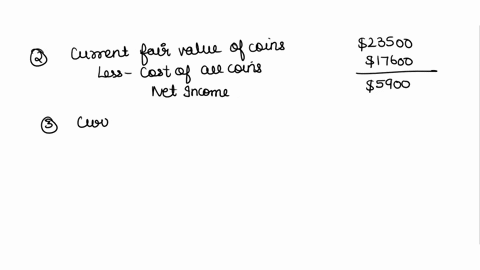 ② Current fair value of coins $23500
Less - Cost of all coins $17600
Net Income $5900
③ Curr